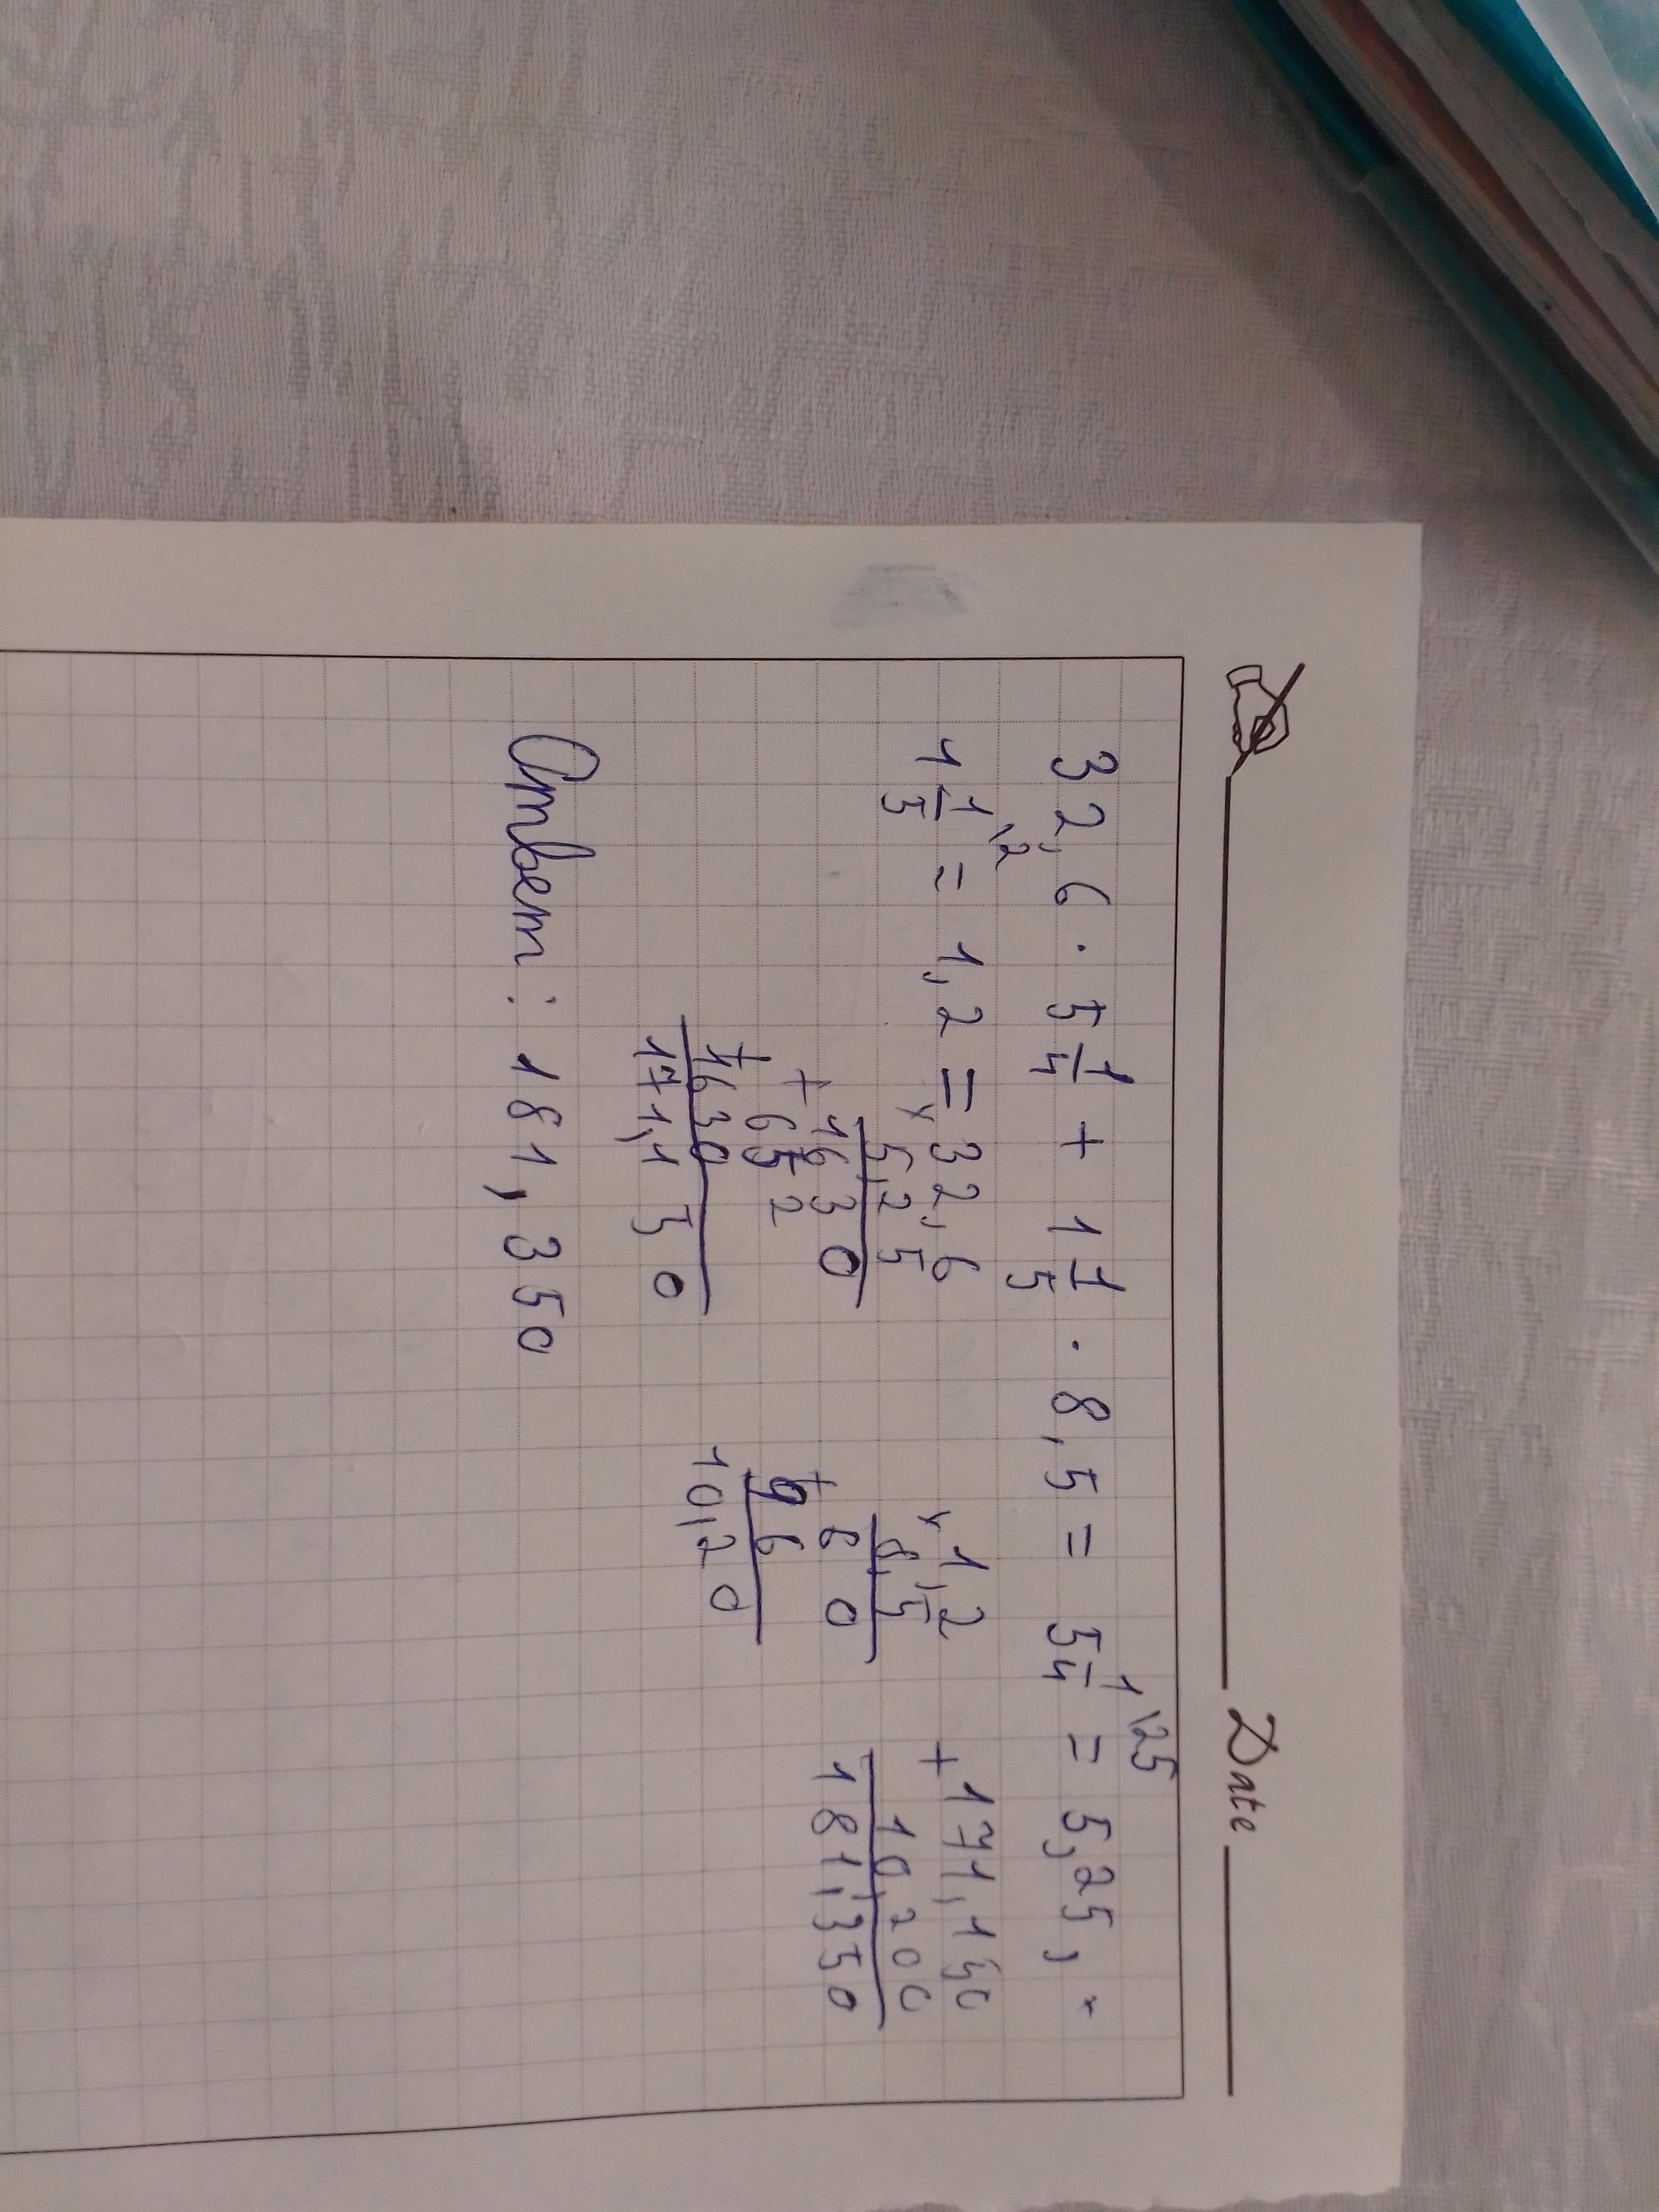 Date
32,6 · 5 1/4 + 1 1/5 · 8,5 = 5 1\25/4 = 5,25, *
1 1\2/5 = 1,2 =
32,6
× 5,25
1630
+ 652
+ 1630
171,150
1,2
× 8,5
60
+ 96
10,20
171,150
+ 10,200
181,350
Ответ: 181,350